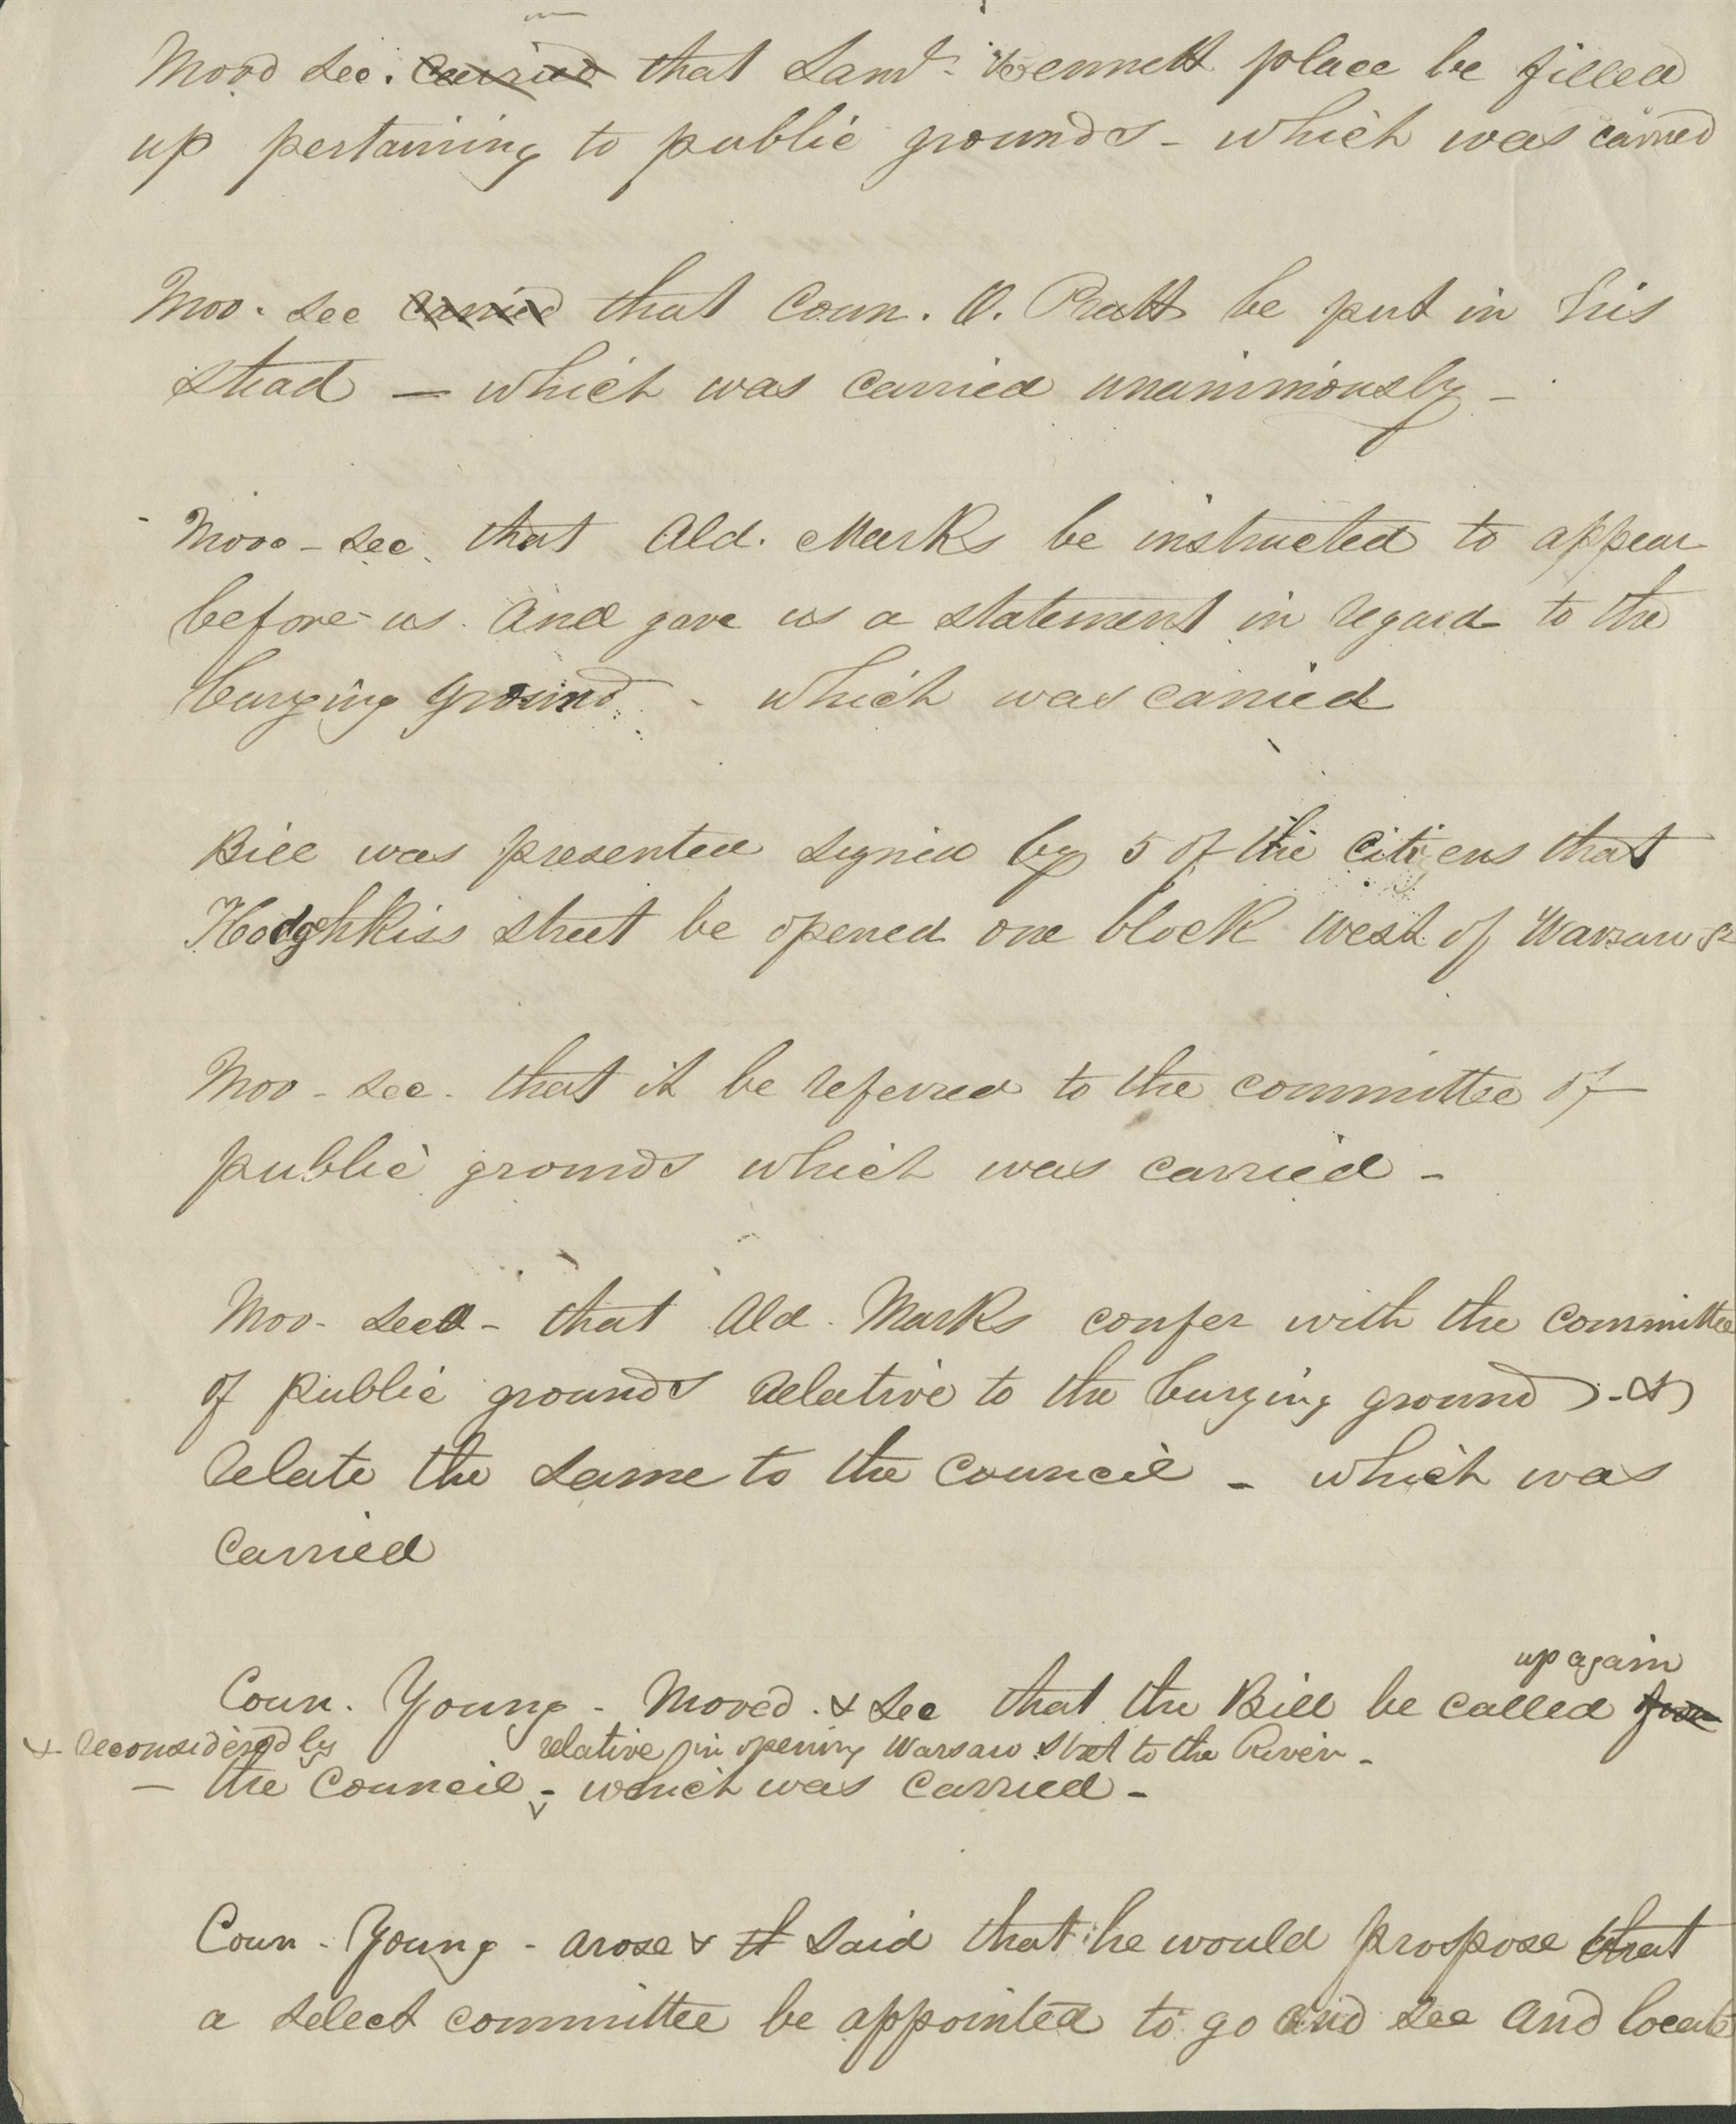 Movd Sec. carried that Saml. Bennett place be filled
up pertaining to public grounds - which was carried
Mov. Sec carried that Coun. O. Pratt be put in his
stead — which was carried unanimously -
Move - Sec. that Ald. Marks be instructed to appear
before us. and gave us a statement in regard to the
burying ground - which was carried
Bill was presented signed by 5 of the citizens that
Hodghkiss street be opened one block west of Warsaw St
Mov - Sec. that it be referred to the committee of
public grounds which was carried -
Mov - Secd - that Ald. Marks confer with the committee
of public grounds relative to the burying ground - &
relate the same to the council - which was
carried
up again
Coun. Young - Moved. & Sec that the Bill be called
& reconsidered by relative in opening Warsaw Stret to the River -
— the council - which was carried -
Coun - Young - arose & said that he would prospose that
a select committee be appointed to go and see and locate